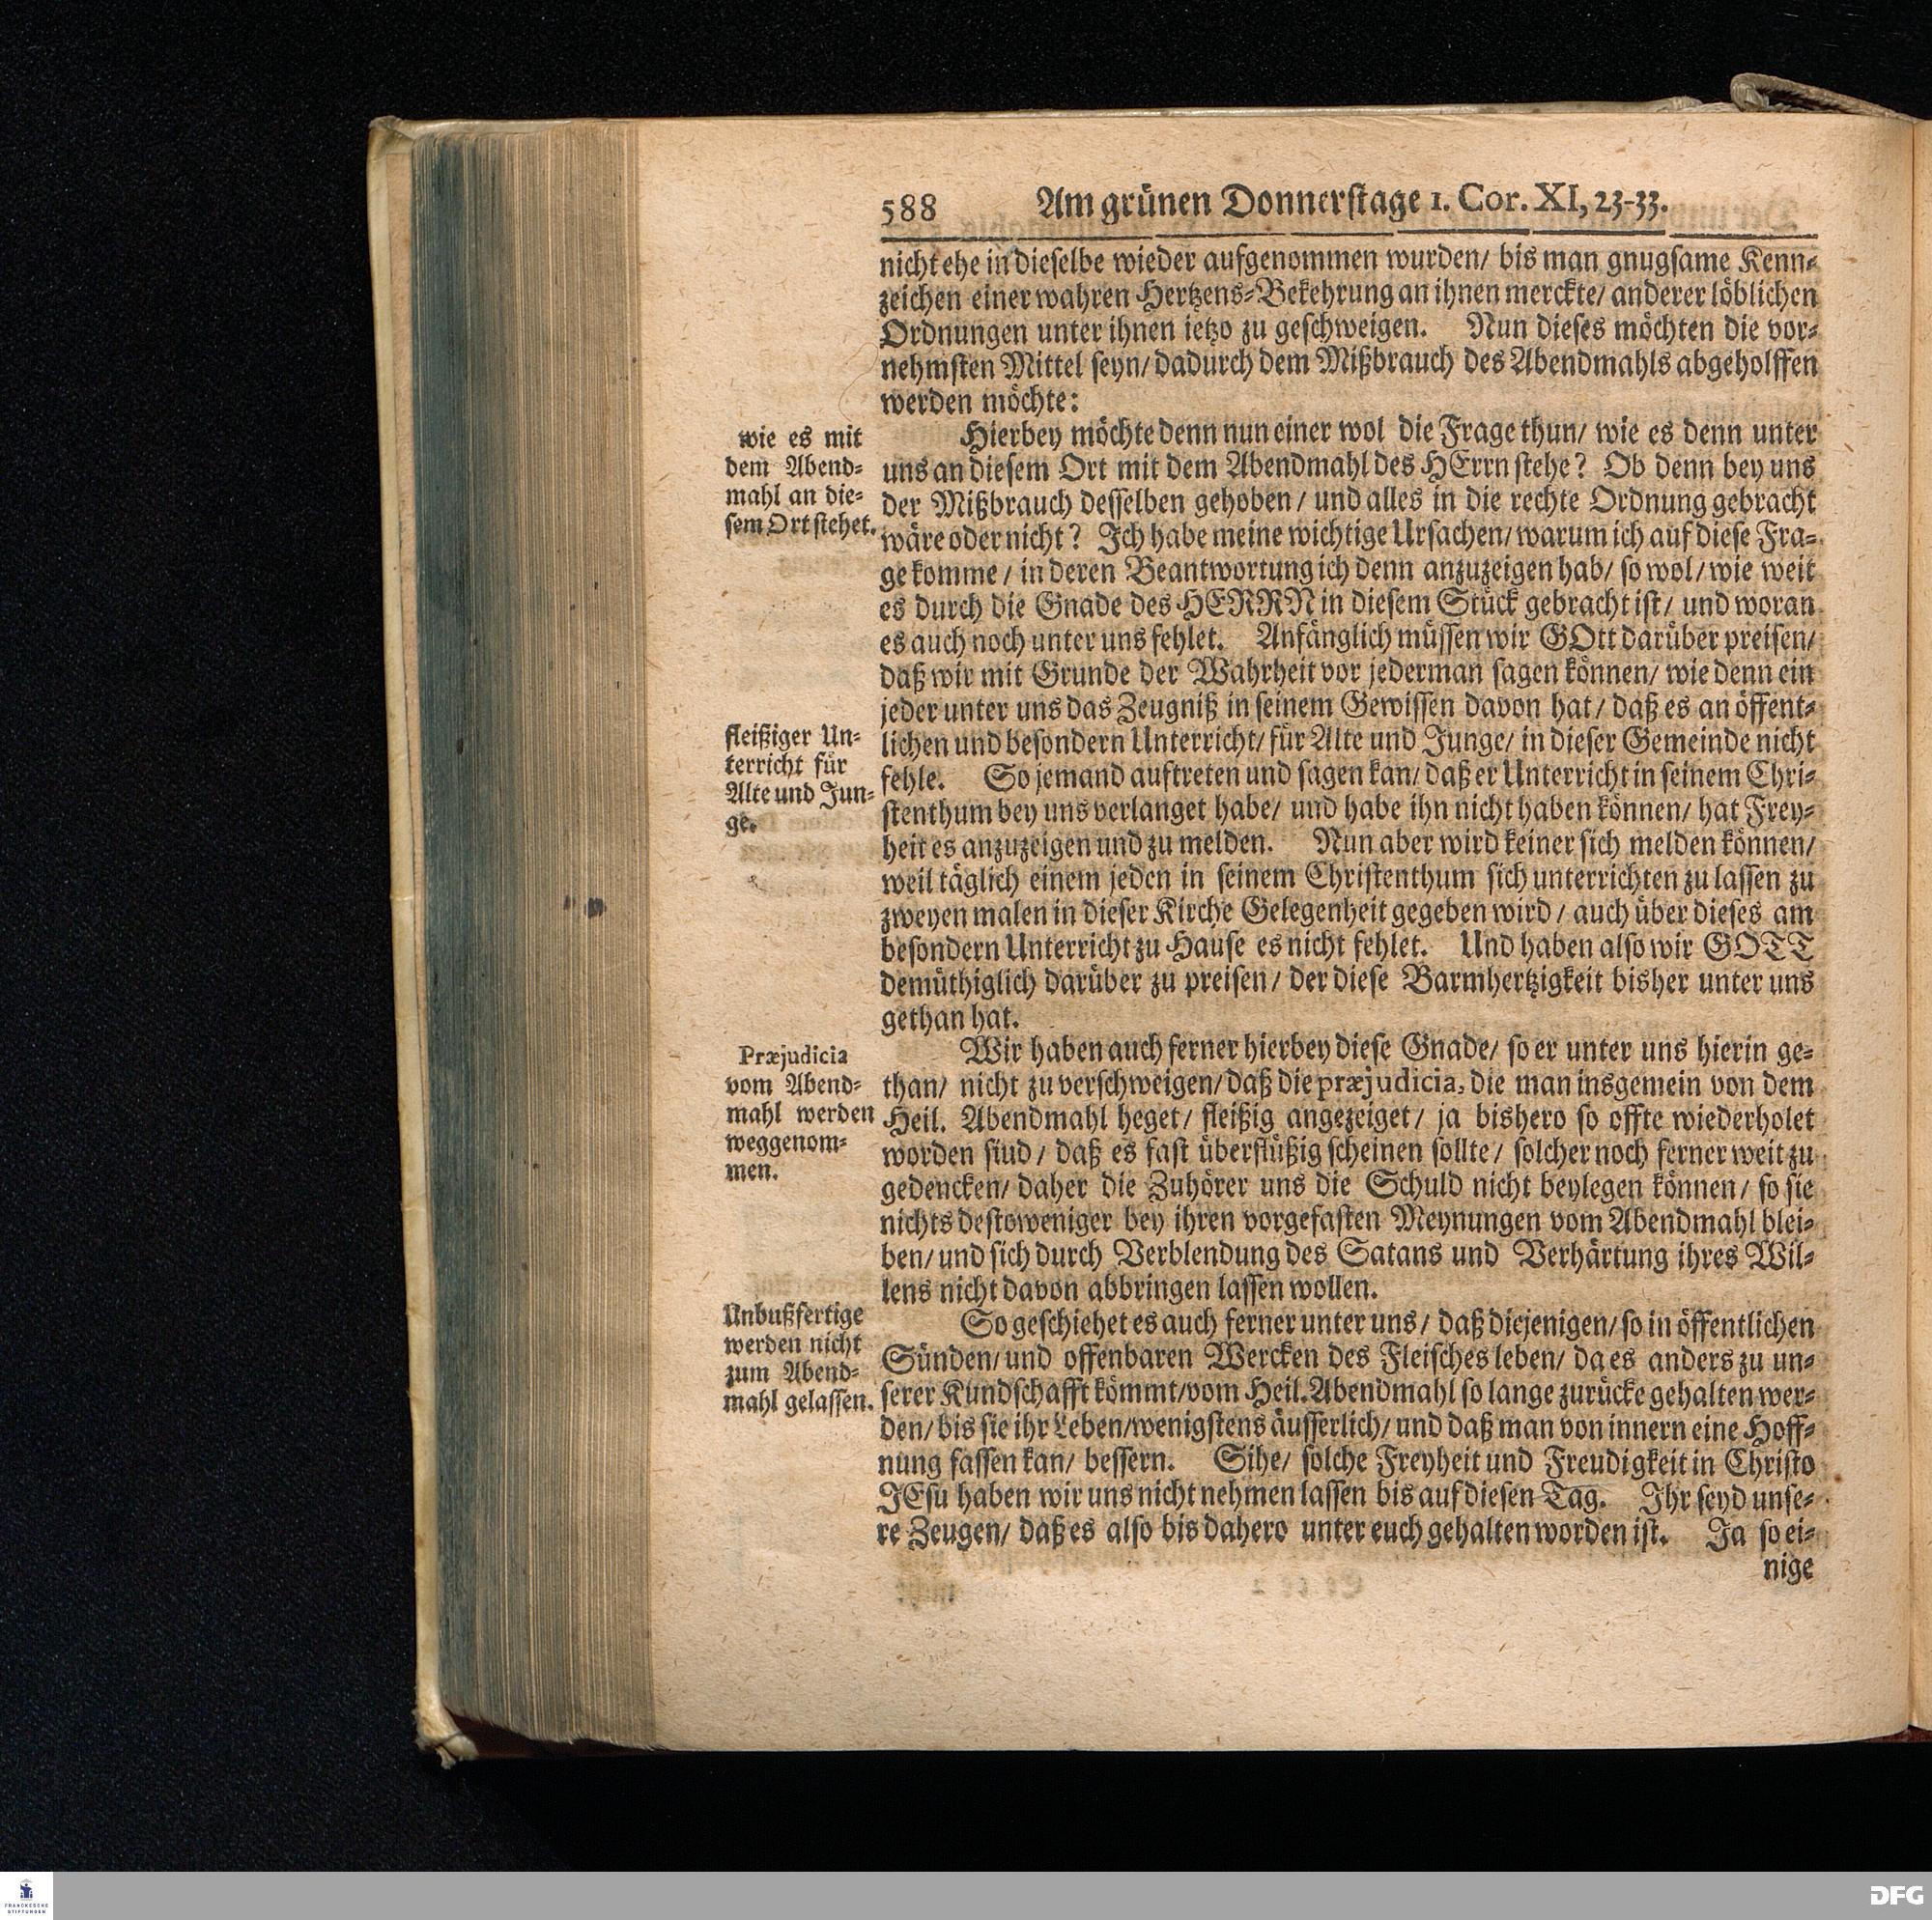 588 Am grünen Donnerstage 1. Cor. XI, 23-33.
nicht ehe in dieselbe wieder aufgenommen wurden/ bis man gnugsame Kenn-
zeichen einer wahren Hertzens-Bekehrung an ihnen merckte/ anderer löblichen
Ordnungen unter ihnen ietzo zu geschweigen. Nun dieses möchten die vor-
nehmsten Mittel seyn/ dadurch dem Mißbrauch des Abendmahls abgeholffen
werden möchte:
wie es mit
dem Abend-
mahl an die-
sem Ort stehet.
Hierbey möchte denn nun einer wol die Frage thun/ wie es denn unter
uns an diesem Ort mit dem Abendmahl des HErrn stehe? Ob denn bey uns
der Mißbrauch desselben gehoben/ und alles in die rechte Ordnung gebracht
wäre oder nicht? Ich habe meine wichtige Ursachen/ warum ich auf diese Fra-
ge komme/ in deren Beantwortung ich denn anzuzeigen hab/ so wol/ wie weit
es durch die Gnade des HERRN in diesem Stück gebracht ist/ und woran
es auch noch unter uns fehlet. Anfänglich müssen wir GOtt darüber preisen/
daß wir mit Grunde der Wahrheit vor jederman sagen können/ wie denn ein
jeder unter uns das Zeugniß in seinem Gewissen davon hat/ daß es an öffent-
fleißiger Un-
terricht für
Alte und Jun-
ge.
lichen und besondern Unterricht/ für Alte und Junge/ in dieser Gemeinde nicht
fehle. So jemand auftreten und sagen kan/ daß er Unterricht in seinem Chri-
stenthum bey uns verlanget habe/ und habe ihn nicht haben können/ hat Frey-
heit es anzuzeigen und zu melden. Nun aber wird keiner sich melden können/
weil täglich einem jeden in seinem Christenthum sich unterrichten zu lassen zu
zweyen malen in dieser Kirche Gelegenheit gegeben wird/ auch über dieses am
besondern Unterricht zu Hause es nicht fehlet. Und haben also wir GOTT
demüthiglich darüber zu preisen/ der diese Barmhertzigkeit bisher unter uns
gethan hat.
Præjudicia
vom Abend-
mahl werden
weggenom-
men.
Wir haben auch ferner hierbey diese Gnade/ so er unter uns hierin ge-
than/ nicht zu verschweigen/ daß die præjudicia, die man insgemein von dem
Heil. Abendmahl heget/ fleißig angezeiget/ ja bishero so offte wiederholet
worden siud/ daß es fast überflüßig scheinen sollte/ solcher noch ferner weit zu
gedencken/ daher die Zuhörer uns die Schuld nicht beylegen können/ so sie
nichts destoweniger bey ihren vorgefasten Meynungen vom Abendmahl blei-
ben/ und sich durch Verblendung des Satans und Verhärtung ihres Wil-
lens nicht davon abbringen lassen wollen.
Unbußfertige
werden nicht
zum Abend-
mahl gelassen.
So geschiehet es auch ferner unter uns/ daß diejenigen/ so in öffentlichen
Sünden/ und offenbaren Wercken des Fleisches leben/ da es anders zu un-
serer Kundschafft kömmt/ vom Heil. Abendmahl so lange zurücke gehalten wer-
den/ bis sie ihr Leben/ wenigstens äusserlich/ und daß man von innern eine Hoff-
nung fassen kan/ bessern. Sihe/ solche Freyheit und Freudigkeit in Christo
JEsu haben wir uns nicht nehmen lassen bis auf diesen Tag. Ihr seyd unse-
re Zeugen/ daß es also bis dahero unter euch gehalten worden ist. Ja so ei-
nige
FRANCKESCHE
STIFTUNGEN
DFG